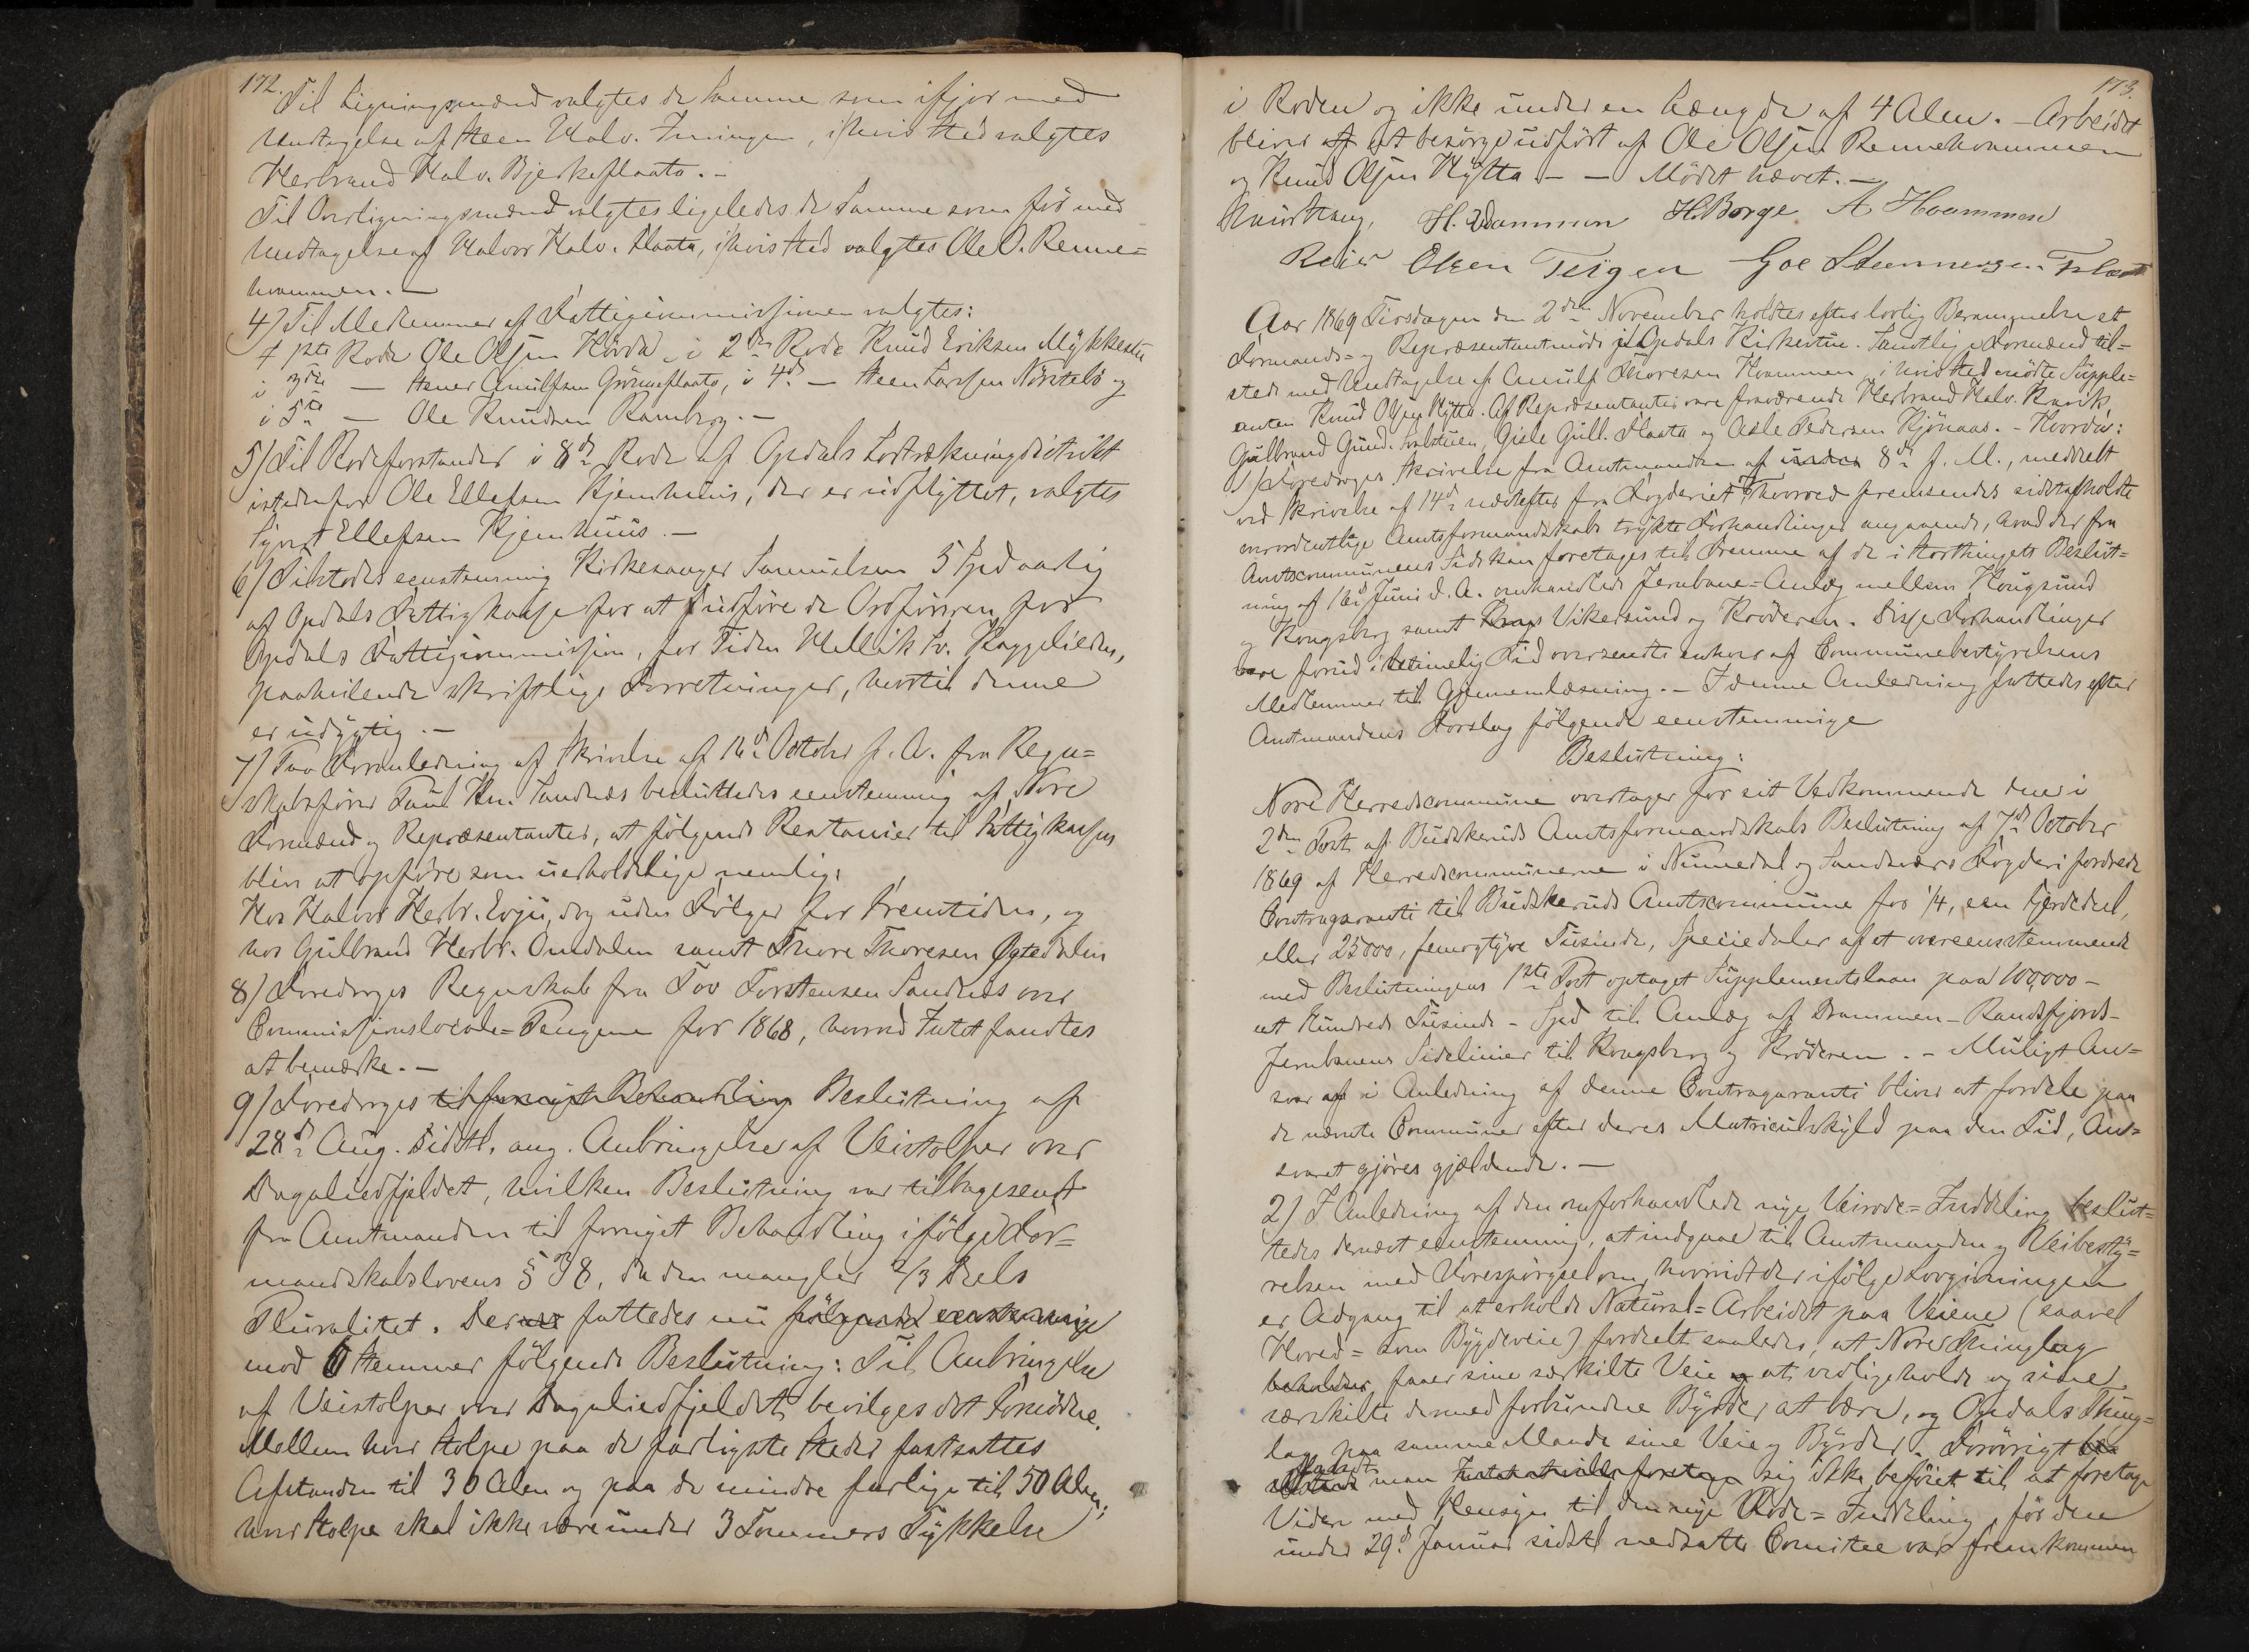 172.
Til Ligningsmænd valgtes de Samme som ifjor med
Undtagelse af Steen Halv. Juvingen, i hvis Sted valgtes
Herbrand Halv. Bjerkeflaata. –
Til Overligningsmænd valgtes ligeledes de Samme som før med
Undtagelse af Halvor Halv. Flaata, i hvis Sted valgtes Ole O. Renne=
hvammen. –
4) Til Medlemmer af Fattigcommissionen valgtes:
I 1ste Rode Ole Olsen Hövda, i 2den Rode Knud Eriksen Mykkestu
i 3die — Arnulfsen Grönneflaata, i 4de — Steen Larsen Nörstebö og
i 5te — Ole Knudsen Ramberg. –
5) Til Rodeforstander i 8de Rode af Opdals District
istedenfor Ole Ellefsen Kjemhuus, der er udflyttet, valgtes
Syvert Ellefsen Kjemhuus. –
6) Tilstodes eenstemmig Kirkesanger Samuelsen 5 Spd aarlig
af Opdals Fattigkasse for at udføre de Ordføreren for
Opdals Fattigcommission, for Tiden Hellik Sv. Kaggelieden,
paahvilende skriftlige Forretninger, hvortil denne
er udygtig. –
7) Paa Foranledning af Skrivelse af 16de October f. A. fra Regn=
skabsfører Paul Hr. Sandnes besluttedes eenstemmig af Nore
Formænd og Repræsentanter, at følgende Restancer til Fattigkassen
bliver at opføre som uerholdelige nemlig:
Hos Halvor Herbr. Evju, dog uden Følger for Fremtiden, og
hos Gulbrand Herbr. Omdalen samt Thore Thoresen Ögtedalen
8) Foredroges Regnskab fra Tov Torstensen Sandnes over
Commissionslocale=Pengene for 1868, hvorved Intet fandtes
at bemærke. –
9) Foredroges til fornyet Behandling Beslutning af
28de Aug. sidstl. ang. Anbringelse af Veistolper over
Dagaliedfjeldet, hvilken Beslutning var tilbagesendt
fra Amtmanden til fornyet Behandling ifølge For=
mandskabslovens § 38, da den mangler 2/3 Deels
Pluralitet. Der fattedes nu følgende eenstemmige
mod 6 Stemmer følgende Beslutning: Til Anbringelse
af Veistolper over Dagaliedfjeldet bevilges det Fornödne.
Mellem hver Stolpe paa de farligste Steder fastsattes
Afstanden til 30 Alen og paa de mindre farlige til 50 Alen;
hver Stolpe skal ikke være under 3 Tommers Tykkelse
173.
i Roden og ikke under en Længde af 4 Alen. – Arbeidet
bliver at besörge udfört af Ole Olsen Rennehvammen
og Knud Olsen Hytta. – – Mödet hævet. –
H. Dammen H. Borge A Hvammen
Reier Olsen Teigen Goe Steennersen
Aar 1869 Tirsdagen den 2den November holdtes efter lovlig Berammelse et
Formands= og Repræsentantmöde i Opdals Kirkestue. Samtlige Formænd til=
stede med Undtagelse af Arnulf Thoresen Hvammen, i hvis Sted mödte Supple=
anten Knud Olsen Hytta. Af Repræsentanter vare fraværende Herbrand Halv. Kravik,
Gulbrand Gund. , Gisle Gull. Flaata og Asle Pedersen Kjönaas. – Hvorda:
1) Foredroges Skrivelse fra Amtmanden af under 8de f. M., meddelt
ved Skrivelse af 14de næstefter fra Fogderiet, hvorved fremsendes sidstafholdte
overordentlige Amtsformandskabs trykte Forhandlinger angaaende, hvad der fra
Amtscommunens Side kan foretages til Fremme af de i Storthingets Beslut=
ning af 16de Juni d. A. omhandlede Jernbane=Anlæg mellem Hougsund
og Kongsberg samt Kongs Vikersund og Kröderen. Disse Forhandlinger
vare forud i betimelig Tid oversendte enhver af Communebestyrelsens
Medlemmer til Gjennemlæsning. – I denne Anledning fattedes efter
Amtmandens Forslag følgende eenstemmige
Beslutning:
Nore Herredscommune overtager for sit Vedkommende den i
2den Post af Buskeruds Amtsformandskabs Beslutning af 7de October
1869 af Herredscommunerne i Numedal og Sandsværs Fogderi fordrede
Contragaranti til Buskeruds Amtscommune for 1/4, een Fjerdedeel,
eller 25000, femogtyve Tusinde, Speciedaler af et overeensstemmende
med Beslutningens 1ste Post optaget Supplementslaan paa 100,000 –
eet Hundrede Tusinde – Spd til Anlæg af Drammen–Randsfjord–
Jernbanens Sidelinier til Kongsberg og Kröderen. – Muligt An=
svar af i Anledning af denne Contragaranti bliver at fordele paa
de nævnte Communer efter deres Matriculskyld paa den Tid, An=
svaret gjöres gjældende. –
2) I Anledning af den omforhandlede nye Veirode=Inddeling beslut=
tedes dernæst eenstemmig, at indgaae til Amtmanden og Veibesty=
relsen med Forespörgsel om, hvorvidt der ifølge Lovgivningen
er Adgang til at erholde Natural=Arbeidet paa Veiene (saavel
Hoved= som Bygdeveie) fordeelt saaledes, at Nore Thinglag
beholder faaer sine særskilte Veie at vedligeholde og sine
særskilte dermed forbundne Byrder at bære, og Opdals Thing=
lag paa samme Maade sine Veie og Byrder. Forövrigt
fandt man sig ikke beföiet til at foretage
Videre med Hensyn til den nye Rode=Inddeling, för den
under 29de Januar sidstl nedsatte Comitee var fremkommen